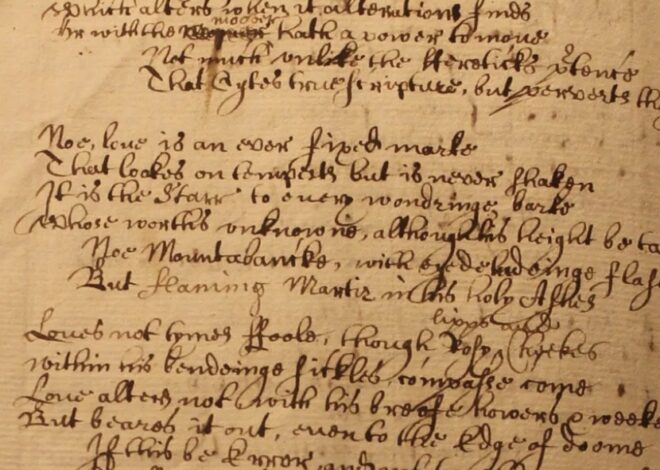 which alters when it alterations finds
Or with the mover hath a power to move
Not much unlike the Hereticks ptence
That Cytes true scripture, but perverts the
Noe, love is an ever fixed marke
That lookes on tempests but is never shaken
It is the Starr to every wondringe barke
whose worths unknowne, although his height be ta
Noe Mountabancke, with eyedeludeinge flas
But flaming Martir in his holy Ashes
lipps and
Loves not tymes ffoole, though Rosy Cheekes
within his bendeinge sickles compasse come
Love alters not with his breefe howers & weekes
But beares it out, even to the Edge of doome
If this be Error